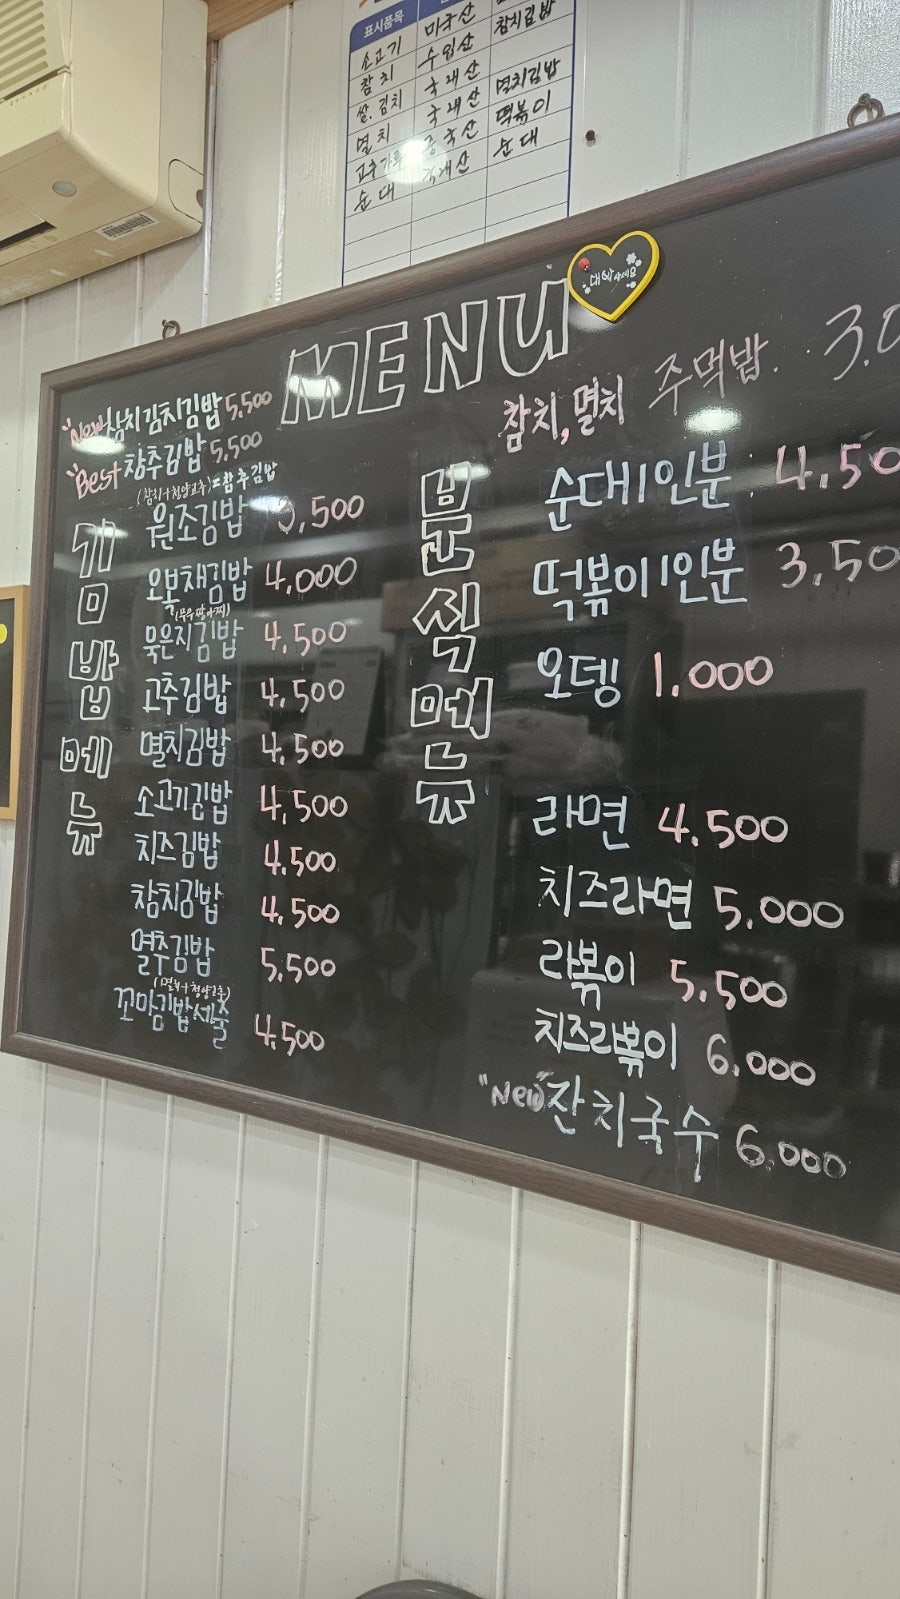 표시품목
소고기 미국산 참치김밥
참치 수입산
쌀, 김치 국내산 멸치김밥
멸치 국내산 떡볶이
고추가루 중국산 순대
순대 국내산
MENU
대박나세요
"New" 참치김치김밥 5,500
"Best" 참추김밥 5,500
(참치+청양고추)=참추김밥
김밥메뉴
원조김밥 3,500
오복채김밥 4,000
(무우짱아찌)
묵은지김밥 4,500
고추김밥 4,500
멸치김밥 4,500
소고기김밥 4,500
치즈김밥 4.500
참치김밥 4,500
멸추김밥 5,500
(멸치+청양고추)
꼬마김밥세줄 4,500
분식메뉴
참치,멸치 주먹밥. 3.0
순대1인분 4.50
떡볶이1인분 3,50
오뎅 1.000
라면 4.500
치즈라면 5,000
라볶이 5.500
치즈라볶이 6.000
"New" 잔치국수 6.000